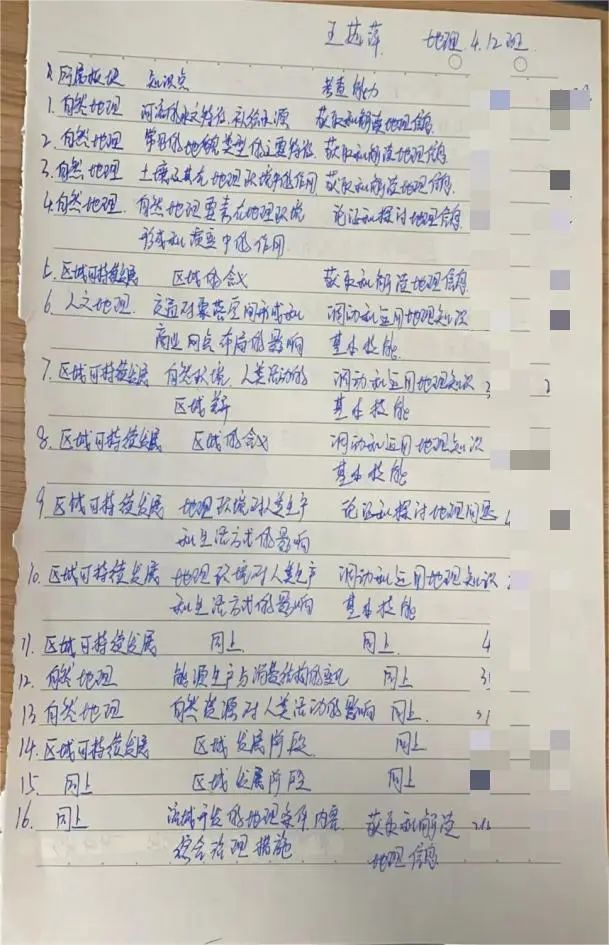 王 萍 地理 4.12班
所属板块 知识点 考查能力
1. 自然地理 河流的水文特征、补给水源 获取和解读地理信息
2. 自然地理 常见的地貌类型的主要特征. 获取和解读地理信息
3. 自然地理 土壤及其在地理环境中的作用 获取和解读地理信息
4. 自然地理. 自然地理要素在地理环境 论证和探讨地理信息
形成和演变中的作用
5. 区域可持续发展 区域的含义 获取和解读地理信息
6. 人文地理. 交通对聚落空间形成和 调动和运用地理知识
商业网点布局的影响 基本技能
7. 区域可持续发展 自然环境、人类活动的 调动和运用地理知识
区域差异 基本技能
8. 区域可持续发展 区域的含义 调动和运用地理知识
基本技能
9. 区域可持续发展 地理环境对人类生产 论证和探讨地理问题
和生活方式的影响
10. 区域可持续发展 地理环境对人类生产 调动和运用地理知识
和生活方式的影响 基本技能
11. 区域可持续发展 同上 同上 4
12. 自然地理 能源生产与消费结构的变化 同上 3
13 自然地理 自然资源对人类活动的影响 同上. 3
14. 区域可持续发展 区域发展阶段 同上
15. 同上 区域发展阶段 同上
16. 同上 流域开发的地理条件、内容 获取和解读
综合治理措施 地理信息